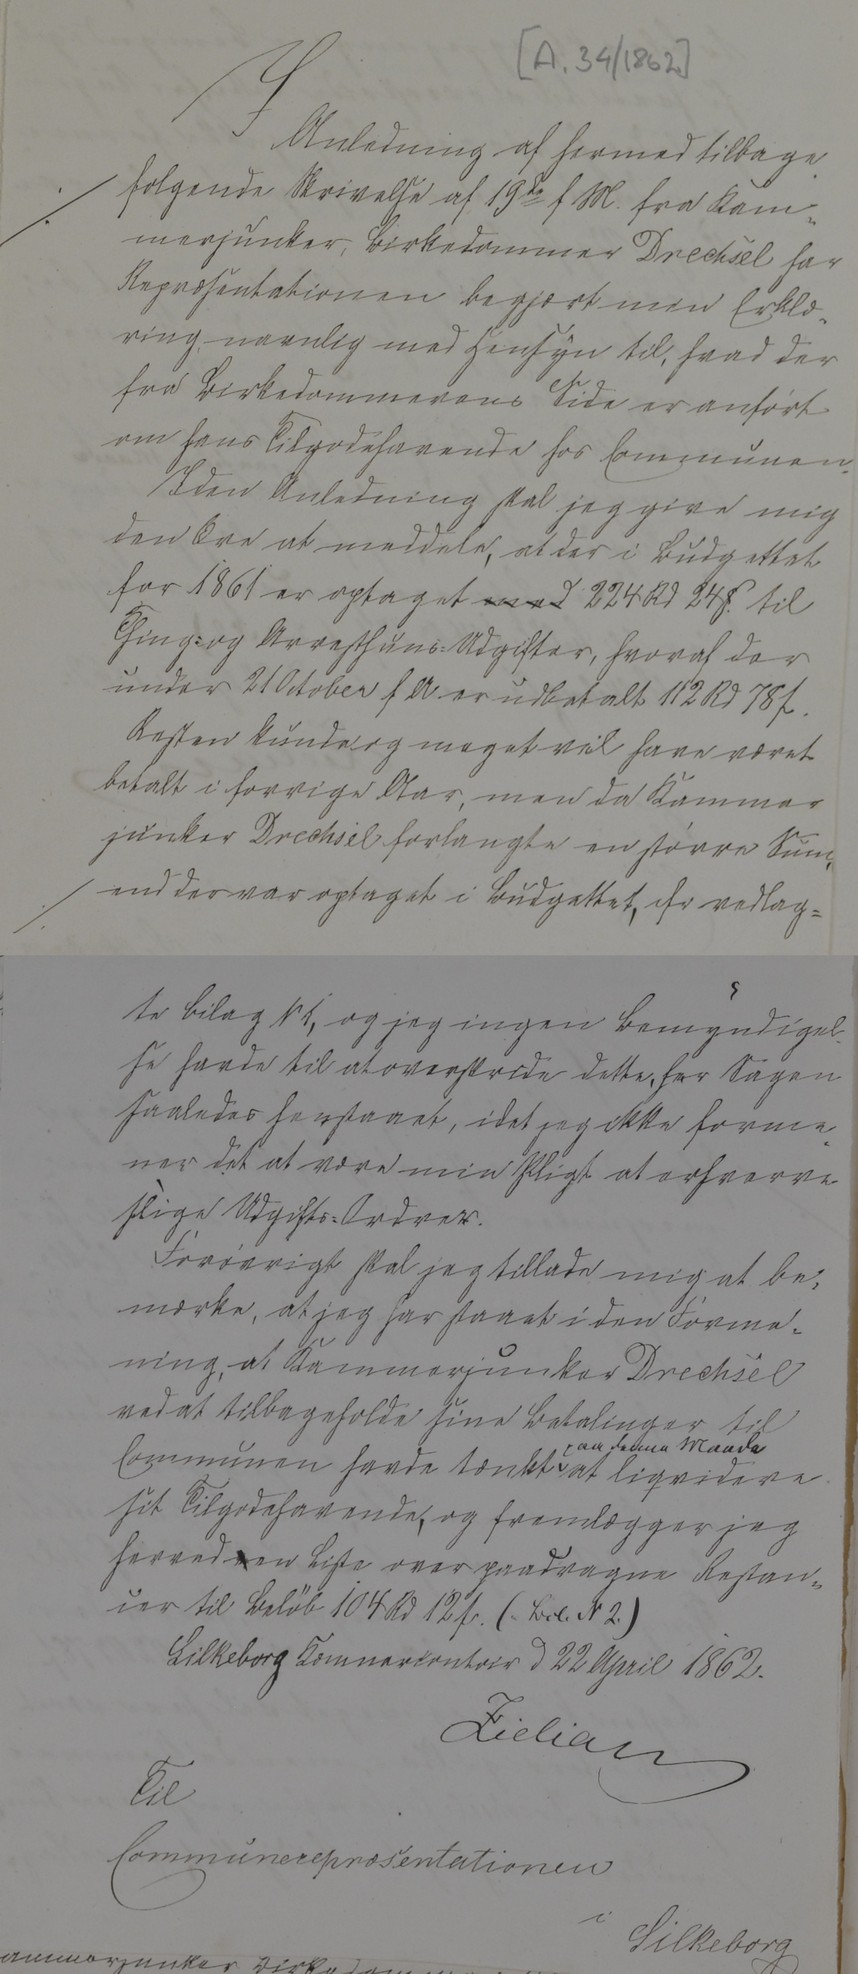 [A. 34/1862]
I
Anledning af hermed tilbage
følgende Skrivelse af 19de f M. fra Kam-
merjunker, Birkedommer Drechsel har
Repræsentationen begjært min Erklæ-
ring navnlig med Hensyn til, hvad der
fra Birkedommerens Side er anført
om hans Tilgodehavende hos Communen.
I den Anledning skal jeg give mig
den Ære at meddele, at der i Budgettet
for 1861 er optaget 224 Rd 24 ß. til
Thing- og Arresthuus-Udgifter, hvoraf der
under 21 October f A er udbetalt 112 Rd 78 ß.
Resten kunde og meget vel have været
betalt i forrige Aar, men da Kammer
junker Drechsel forlangte en større Sum,
end der var optaget i Budgettet, cfr vedlag-
te Bilag N 1, og jeg ingen Bemyndigel-
se havde til at overskride dette, har Sagen
saaledes henstaaet, idet jeg ikke forme-
ner det at være min Pligt at erhverve
slige Udgifts-Ordrer.
Forøvrigt skal jeg tillade mig at be-
mærke, at jeg har staaet i den Forme-
ning, at Kammerjunker Drechsel
ved at tilbageholde sine Betalinger til
Communen havde tænkt paa denne Maade at liqvidere
sit Tilgodehavende, og fremlægger jeg
herved en Liste over paadragne Restan-
cer til Beløb 104 Rd 12 ß. (Bil. N 2.)
Silkeborg Kæmnercontoir d 22 April 1862.
Zielian
Til
Communerepræsentationen
i
Silkeborg